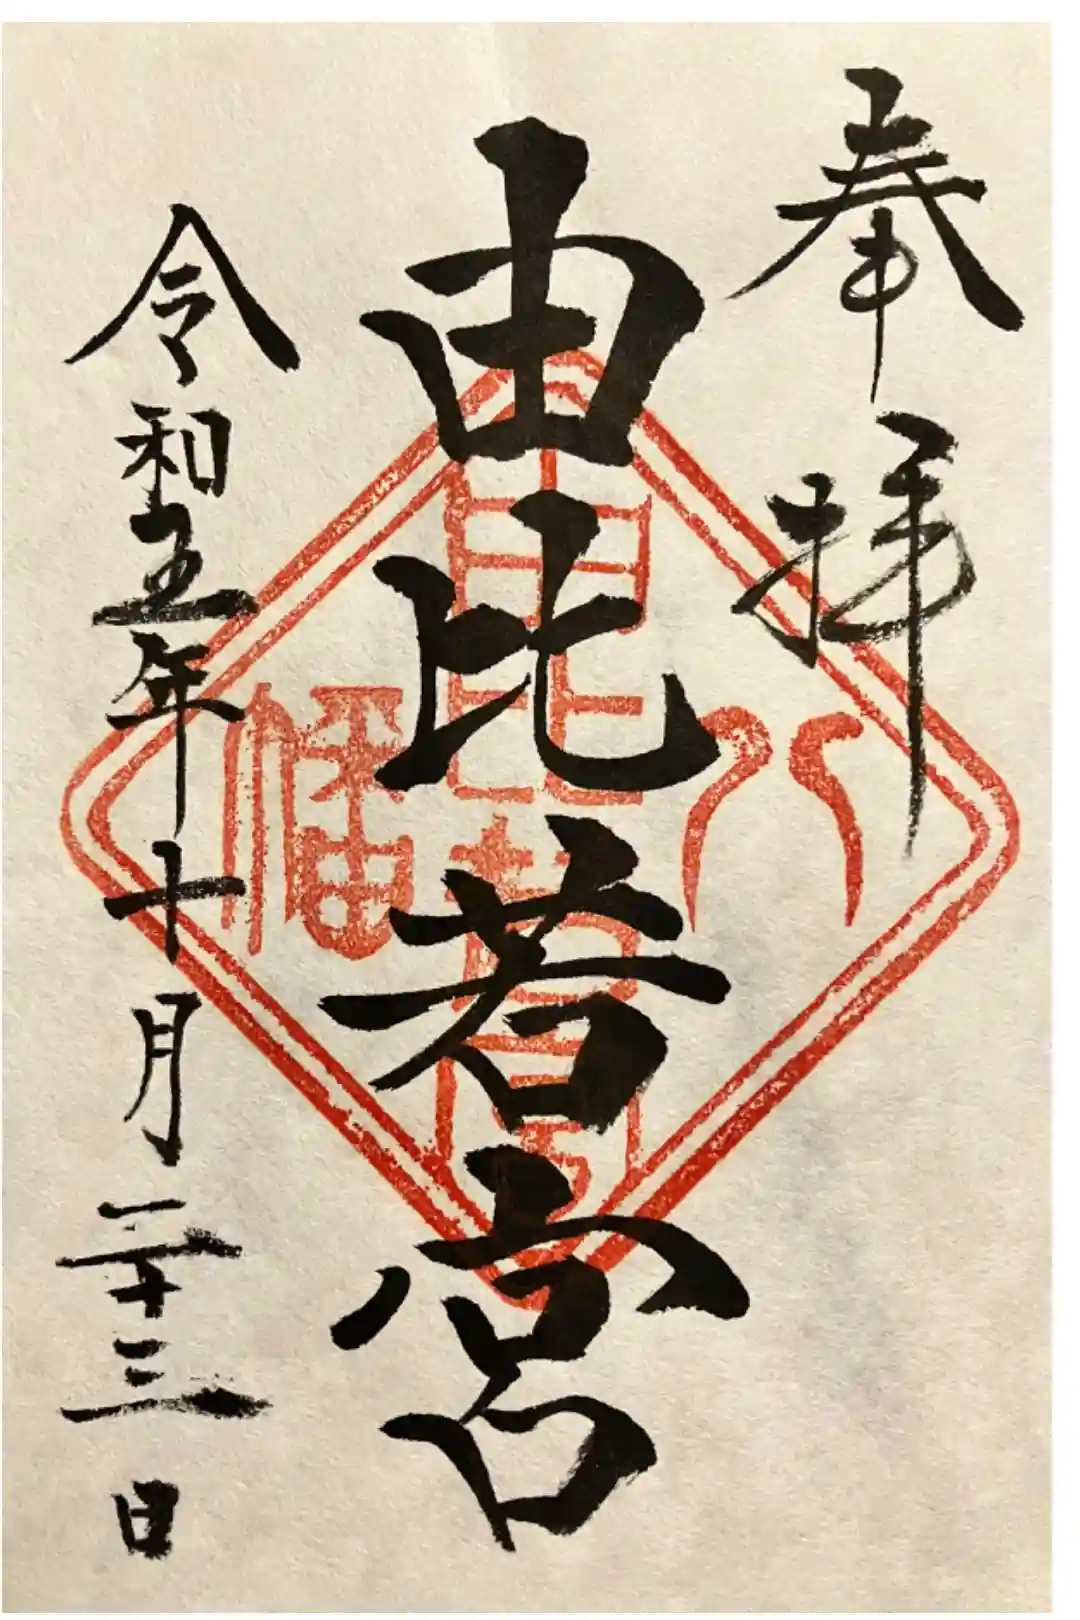 奉拝
由比若宮
八幡
由比若宮
令和五年十月二十三日